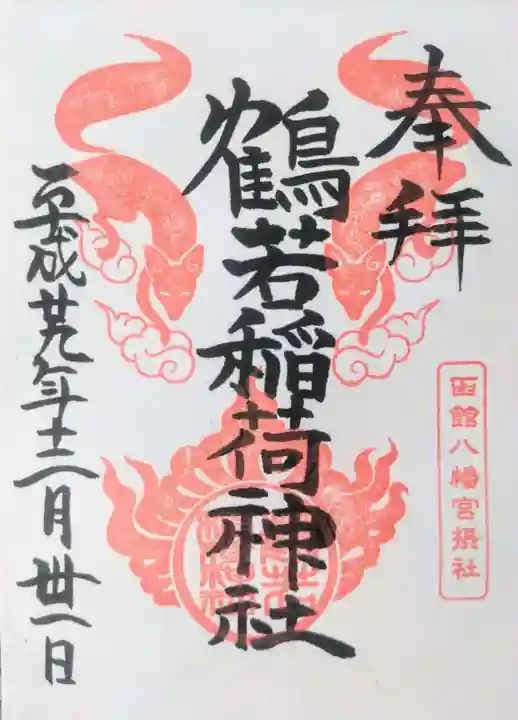 奉拝
函館八幡宮摂社
鶴若稲荷神社
平成廿九年十二月丗一日